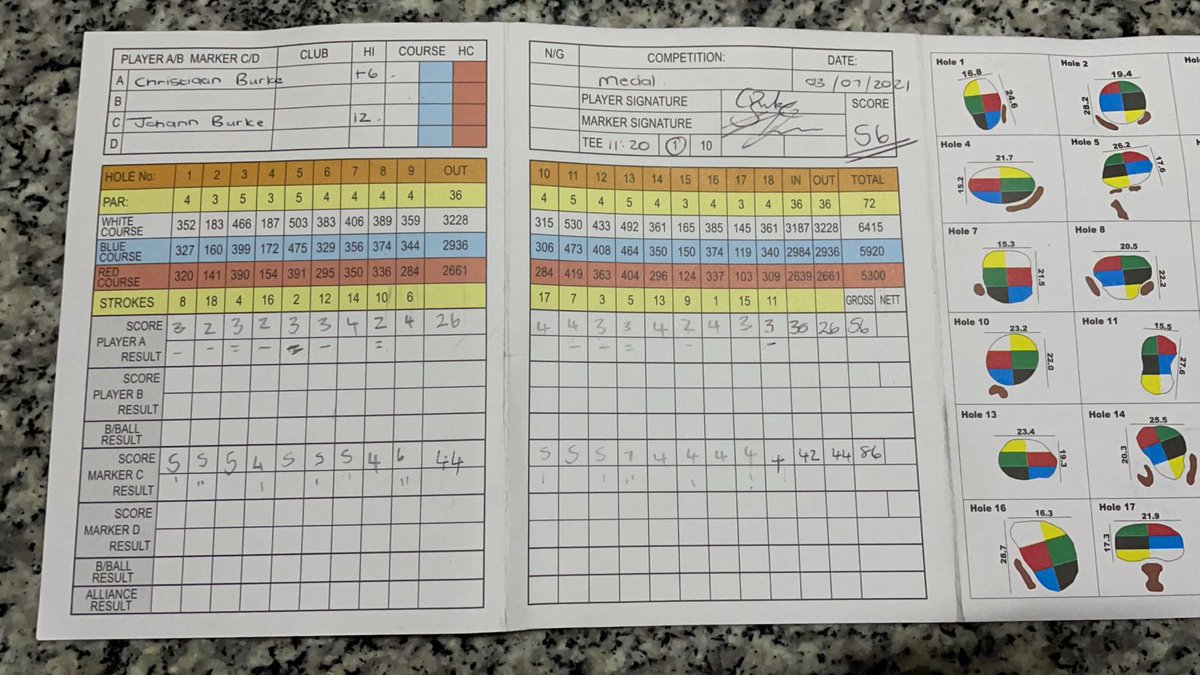 PLAYER A/B MARKER C/D CLUB HI COURSE HC
A Christiaan Burke +6
B
C Johann Burke 12
D
HOLE No: 1 2 3 4 5 6 7 8 9 OUT
PAR: 4 3 5 3 5 4 4 4 4 36
WHITE COURSE 352 183 466 187 503 383 406 389 359 3228
BLUE COURSE 327 160 399 172 475 329 356 374 344 2936
RED COURSE 320 141 390 154 391 295 350 336 284 2661
STROKES 8 18 4 16 2 12 14 10 6
PLAYER A SCORE 3 2 3 2 3 3 4 2 4 26
RESULT – – = – = – =
PLAYER B SCORE
RESULT
B/BALL RESULT
MARKER C SCORE 5 5 5 4 5 5 5 4 6 44
RESULT
MARKER D SCORE
RESULT
B/BALL RESULT
ALLIANCE RESULT
N/G COMPETITION: DATE:
Medal. 03/07/2021
PLAYER SIGNATURE SCORE
MARKER SIGNATURE 56
TEE 11:20 1 10
10 11 12 13 14 15 16 17 18 IN OUT TOTAL
4 5 4 5 4 3 4 3 4 36 36 72
315 530 433 492 361 165 385 145 361 3187 3228 6415
306 473 408 464 350 150 374 119 340 2984 2936 5920
284 419 363 404 296 124 337 103 309 2639 2661 5300
17 7 3 5 13 9 1 15 11 GROSS NETT
4 4 3 3 4 2 4 3 3 30 26 56
– – = – –
5 5 5 7 4 4 4 4 4 42 44 86
Hole 1
16.8
24.6
Hole 2
19.4
28.2
Hole 4
21.7
15.2
Hole 5
26.2
17.6
Hole 7
15.3
21.5
Hole 8
20.5
22.2
Hole 10
23.2
22.0
Hole 11
15.5
27.6
Hole 13
23.4
19.3
Hole 14
25.5
20.3
Hole 16
16.3
28.7
Hole 17
21.9
17.3